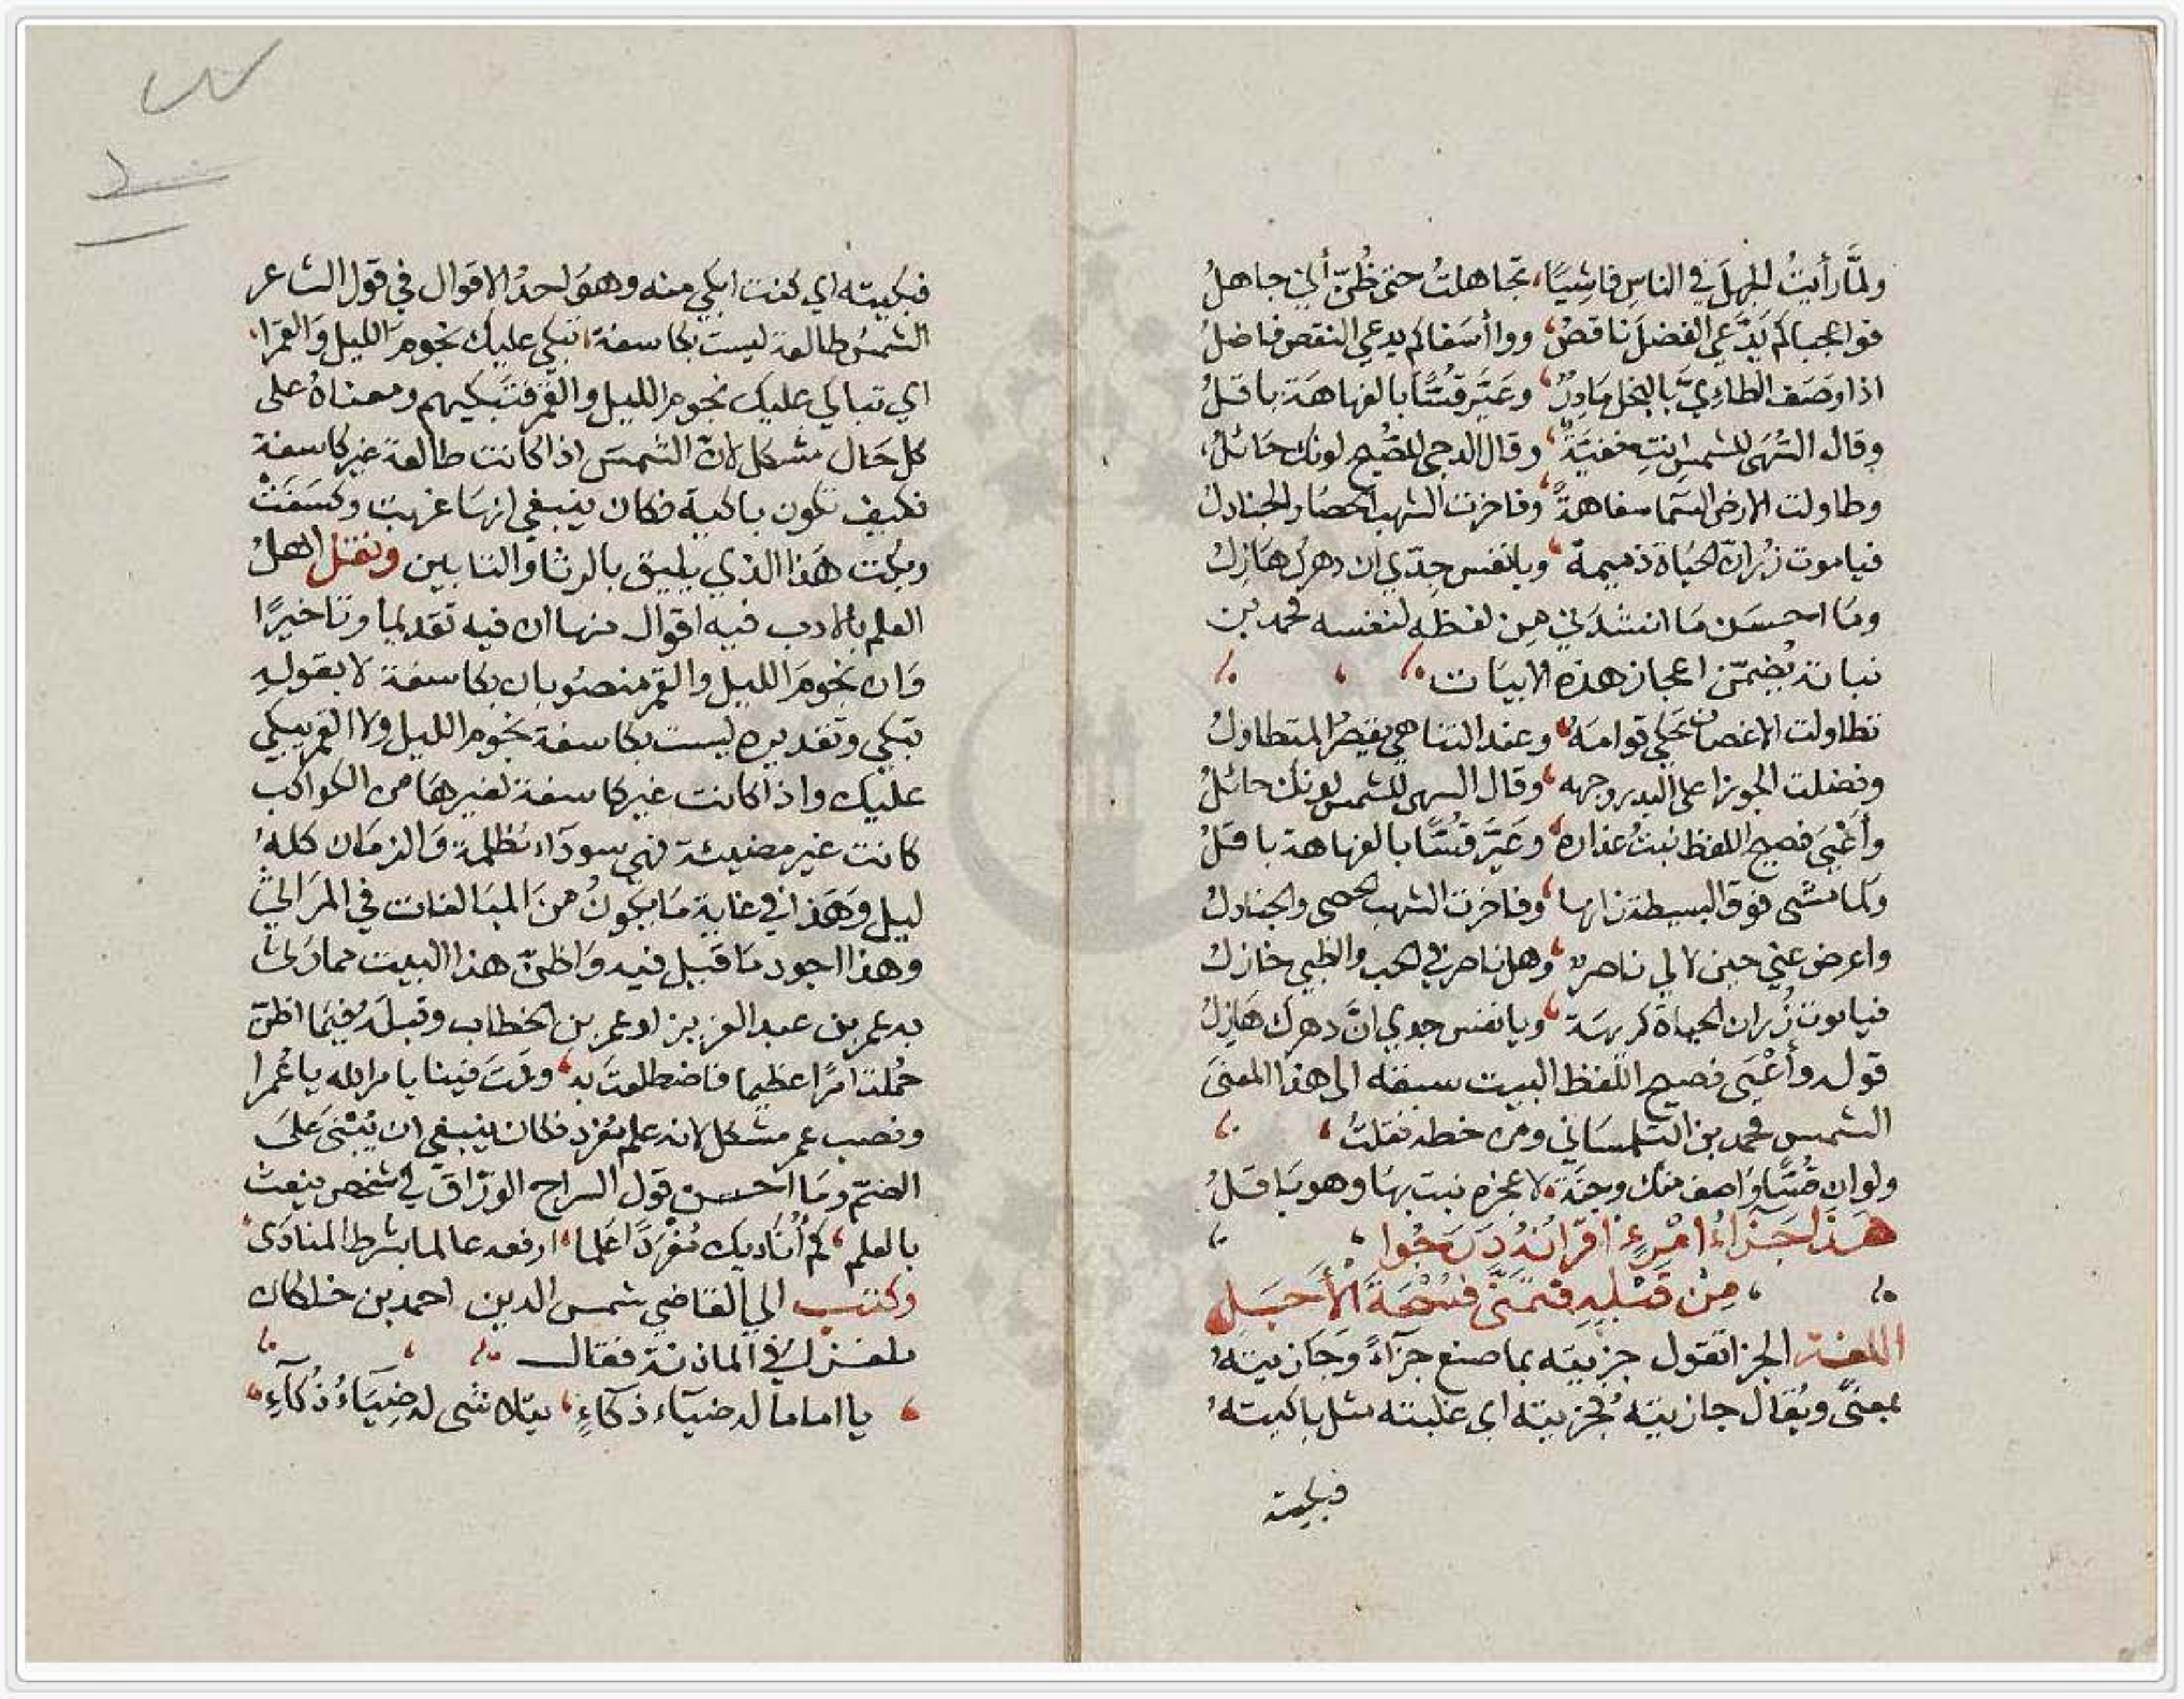 ولمَّا رأيتُ الجهلَ في الناسِ فاشِيًا، تجاهلتُ حتى ظُنّ أني جاهلُ
فوا عجبا كم يَدَّعي الفضلَ ناقصٌ، ووا أسفا كم يدعي النقص فاضلُ
اذا وصَف الطاءيَّ بالبخل مَادِرٌ، وعَيَّر قُسًّا بالفهاهة باقلُ
وقال السُهَى للشمسِ انتِ خفيَّةٌ، وقال الدجى للصُبح لونك حَائلُ،
وطاولت الارض السَّما سفاهةً، وفاخرت الشهب الحصَا والجنادلُ
فيا موت زُر انّ الحيَاة ذميمة، ويا نفس جِدّي ان دهرك هَازلُ
ومَا احسَن مَا انشدَني مِن لفظه لنفسه محمد بن
نباتة يُضمّن اعجاز هذه الابيَات
تطاولت الاغصان تحكي قوامَهُ، وعند التناهي يقصُر المتطاولُ
وفضلت الجوزا على البدر وجهه، وقال السهى للشمس لونك حائلُ
وأعْيَى فصيح اللفظ نبتُ عذاره، وعَيَّر قُسًّا بالفهاهة باقلُ
وكما مشى فوق البسيطة زانها، وفاخرت الشهب الحصى والجنادلُ
واعرض عني حين لا لي ناصرٌ، وهل ناصر في الحب والظبي خاذلُ
فيا موت زُر ان الحياة كريهَة، ويا نفس جودي انَّ دهرك هَازِلُ
قوله وأعْيَى فصيح اللفظ البيت سبقه الى هذا المعنىَ
الشمس محمد بن التلمساني ومن خطه نقلتُ،
ولو ان قُسًّا وَاصف منك وجنَة، لا عجزه نبت بهَا وهو بَاقلُ
هَذَا جَزَاءُ امْرِءٍ اقرَانُهُ دَرَجُوا،
، مِنْ قَبْلِهِ فتمَنَّى فُسْحَةَ الْأَجَلِ
اللغة الجزا تقول جزيته بما صنع جزَآءً وَجَازيته
بمعنىً ويُقال جازيته فجزيته اي غلبته مثل باكيته
فبكيته
فبكيته اي كنت ابكي منه وهوَ احدُ الاقوال في قول الشاعر
الشمسُ طالعة ليست بكاسفة، تبكي عليك نجومَ الليل وَالقمرَا،
اي تباكي عليك نجوم الليل والقمر فتَبكيهم ومعناهُ على
كل حَال مشكل لانّ الشمسَ اذا كانت طالعة غير كاسفة
فكيف تكون باكية فكان ينبغي انهَا غربَت وكسَفَتْ
وبكت هَذا الذي يليق بالرثا والتابين ونقل اهلُ
العلم بالادب فيه اقوال منها ان فيه تقديمًا وتاخيرًا
وَان نجومَ الليل والقمر منصوُبان بكاسفة لا بقولهِ
تبكي وتقديره ليست بكاسفة نجوم الليل ولا القمر يبكي
عليك واذا كانت غير كاسفة لغيرهَا من الكواكب
كانت غير مضيئة فهي سودَآء مُظلمة وَالزمَان كلهُ
ليل وَهَذا في غاية مَا يَكونُ منَ المبَالغات في المرَاثي
وهذا اجود مَا قيل فيه وَاظنّ هذا البيت مما رثى
به عمر بن عبد العزيز او عمر بن الخطاب وقبلَهُ فيمَا اظنّ
حُملتَ امرًا عظيما فاضطلعتَ به، وقمتَ فينا بامر الله يا عُمرا
ونصب عمر مشكل لانه علم مفرد فكان ينبغي ان يُبْنى عَلى
الضمّ ومَا احسن قول السراج الورّاق في شخص ينعت
بالعلم، كم أُنَاديك مُفْرَدًا عَلَما، ارفعه عالما بشرط المنادَى
وكتب الي القاضي شمس الدين احمد بن خلكان
ملغزا في الماذنة فقال
، يا اماما له ضيآء ذكآءٍ، يتلاشى له ضِيَاءُ ذُكآءِ،